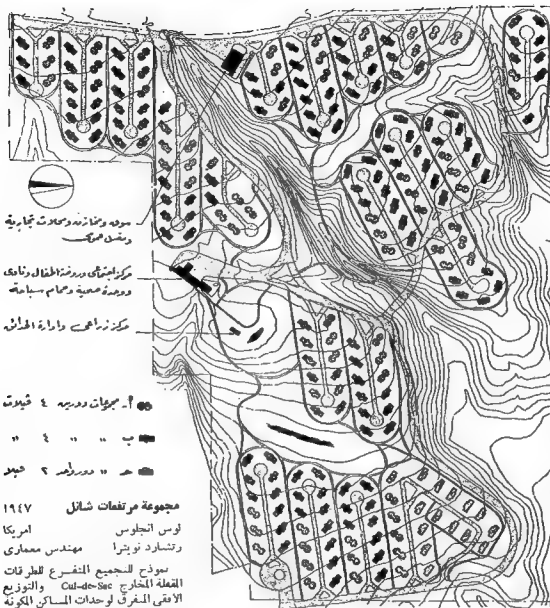 سوق ومخازن ومحلات تجارية
مركز اجتماعى وروضة اطفال ونادى
ووحدة صحية وحمام سباحة
مركز زراعى وادارة الحدائق
أ- مجموعات دورين ٤ فيلات
ب " " ٤ "
حـ " دور واحد ٢ فيلا
مجموعة مرتفعات شانل ١٩٤٧
لوس انجلوس امريكا
رتشارد نويترا مهندس معمارى
نموذج للتجميع المتفرع للطرقات
المقفلة المخارج Cul-de-Sec والتوزيع
الافقى المفرق لوحدات المساكن المكونة